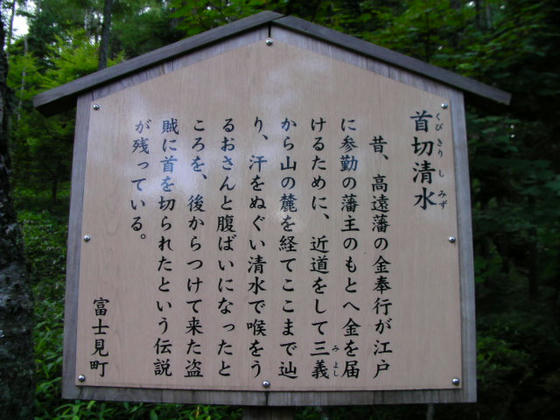 首切清水
くびきりしみず
昔、高遠藩の金奉行が江戸
に参勤の藩主のもとへ金を届
けるために、近道をして三義
みよし
から山の麓を経てここまで辿
り、汗をぬぐい清水で喉をう
るおさんと腹ばいになったと
ころを、後からつけて来た盗
賊に首を切られたという伝説
が残っている。
富士見町